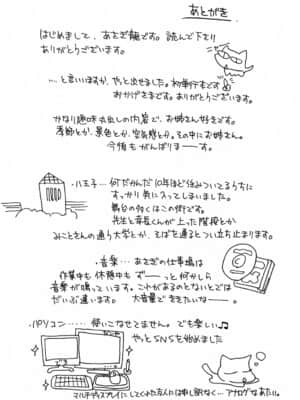 あとがき
はじめまして、あさぎ龍です。読んで下さり
ありがとうございます。
…と言いますか、やっと出せました。初単行本です
おかげさまです。ありがとうございます。
かなり趣味丸出しの内容で、お姉さん好きです。
季節とか、景色とか、空気感とか。その中にお姉さん。
今後もがんばりまーーす。
・八王子…何だかんだ10年ほど住みついてるうちに
すっかり気に入ってしまいました。
舞台の多くはこの街です。
先生と委員長が上った階段とか
みことさんの通う大学とか、そばを通るとつい立ち止まります。
・音楽…あさぎの仕事場は
作業中も休憩中もずーーっと何かしら
音楽が鳴っています。これがあるのとないとでは
だいぶ違います。大音量でききたいなーー。
・パソコン……使いこなせてません。でも楽しい♫
やっとSNSを始めました
マルチディスプレイにしてくれた友人には申し訳なく…アナログなあたい。